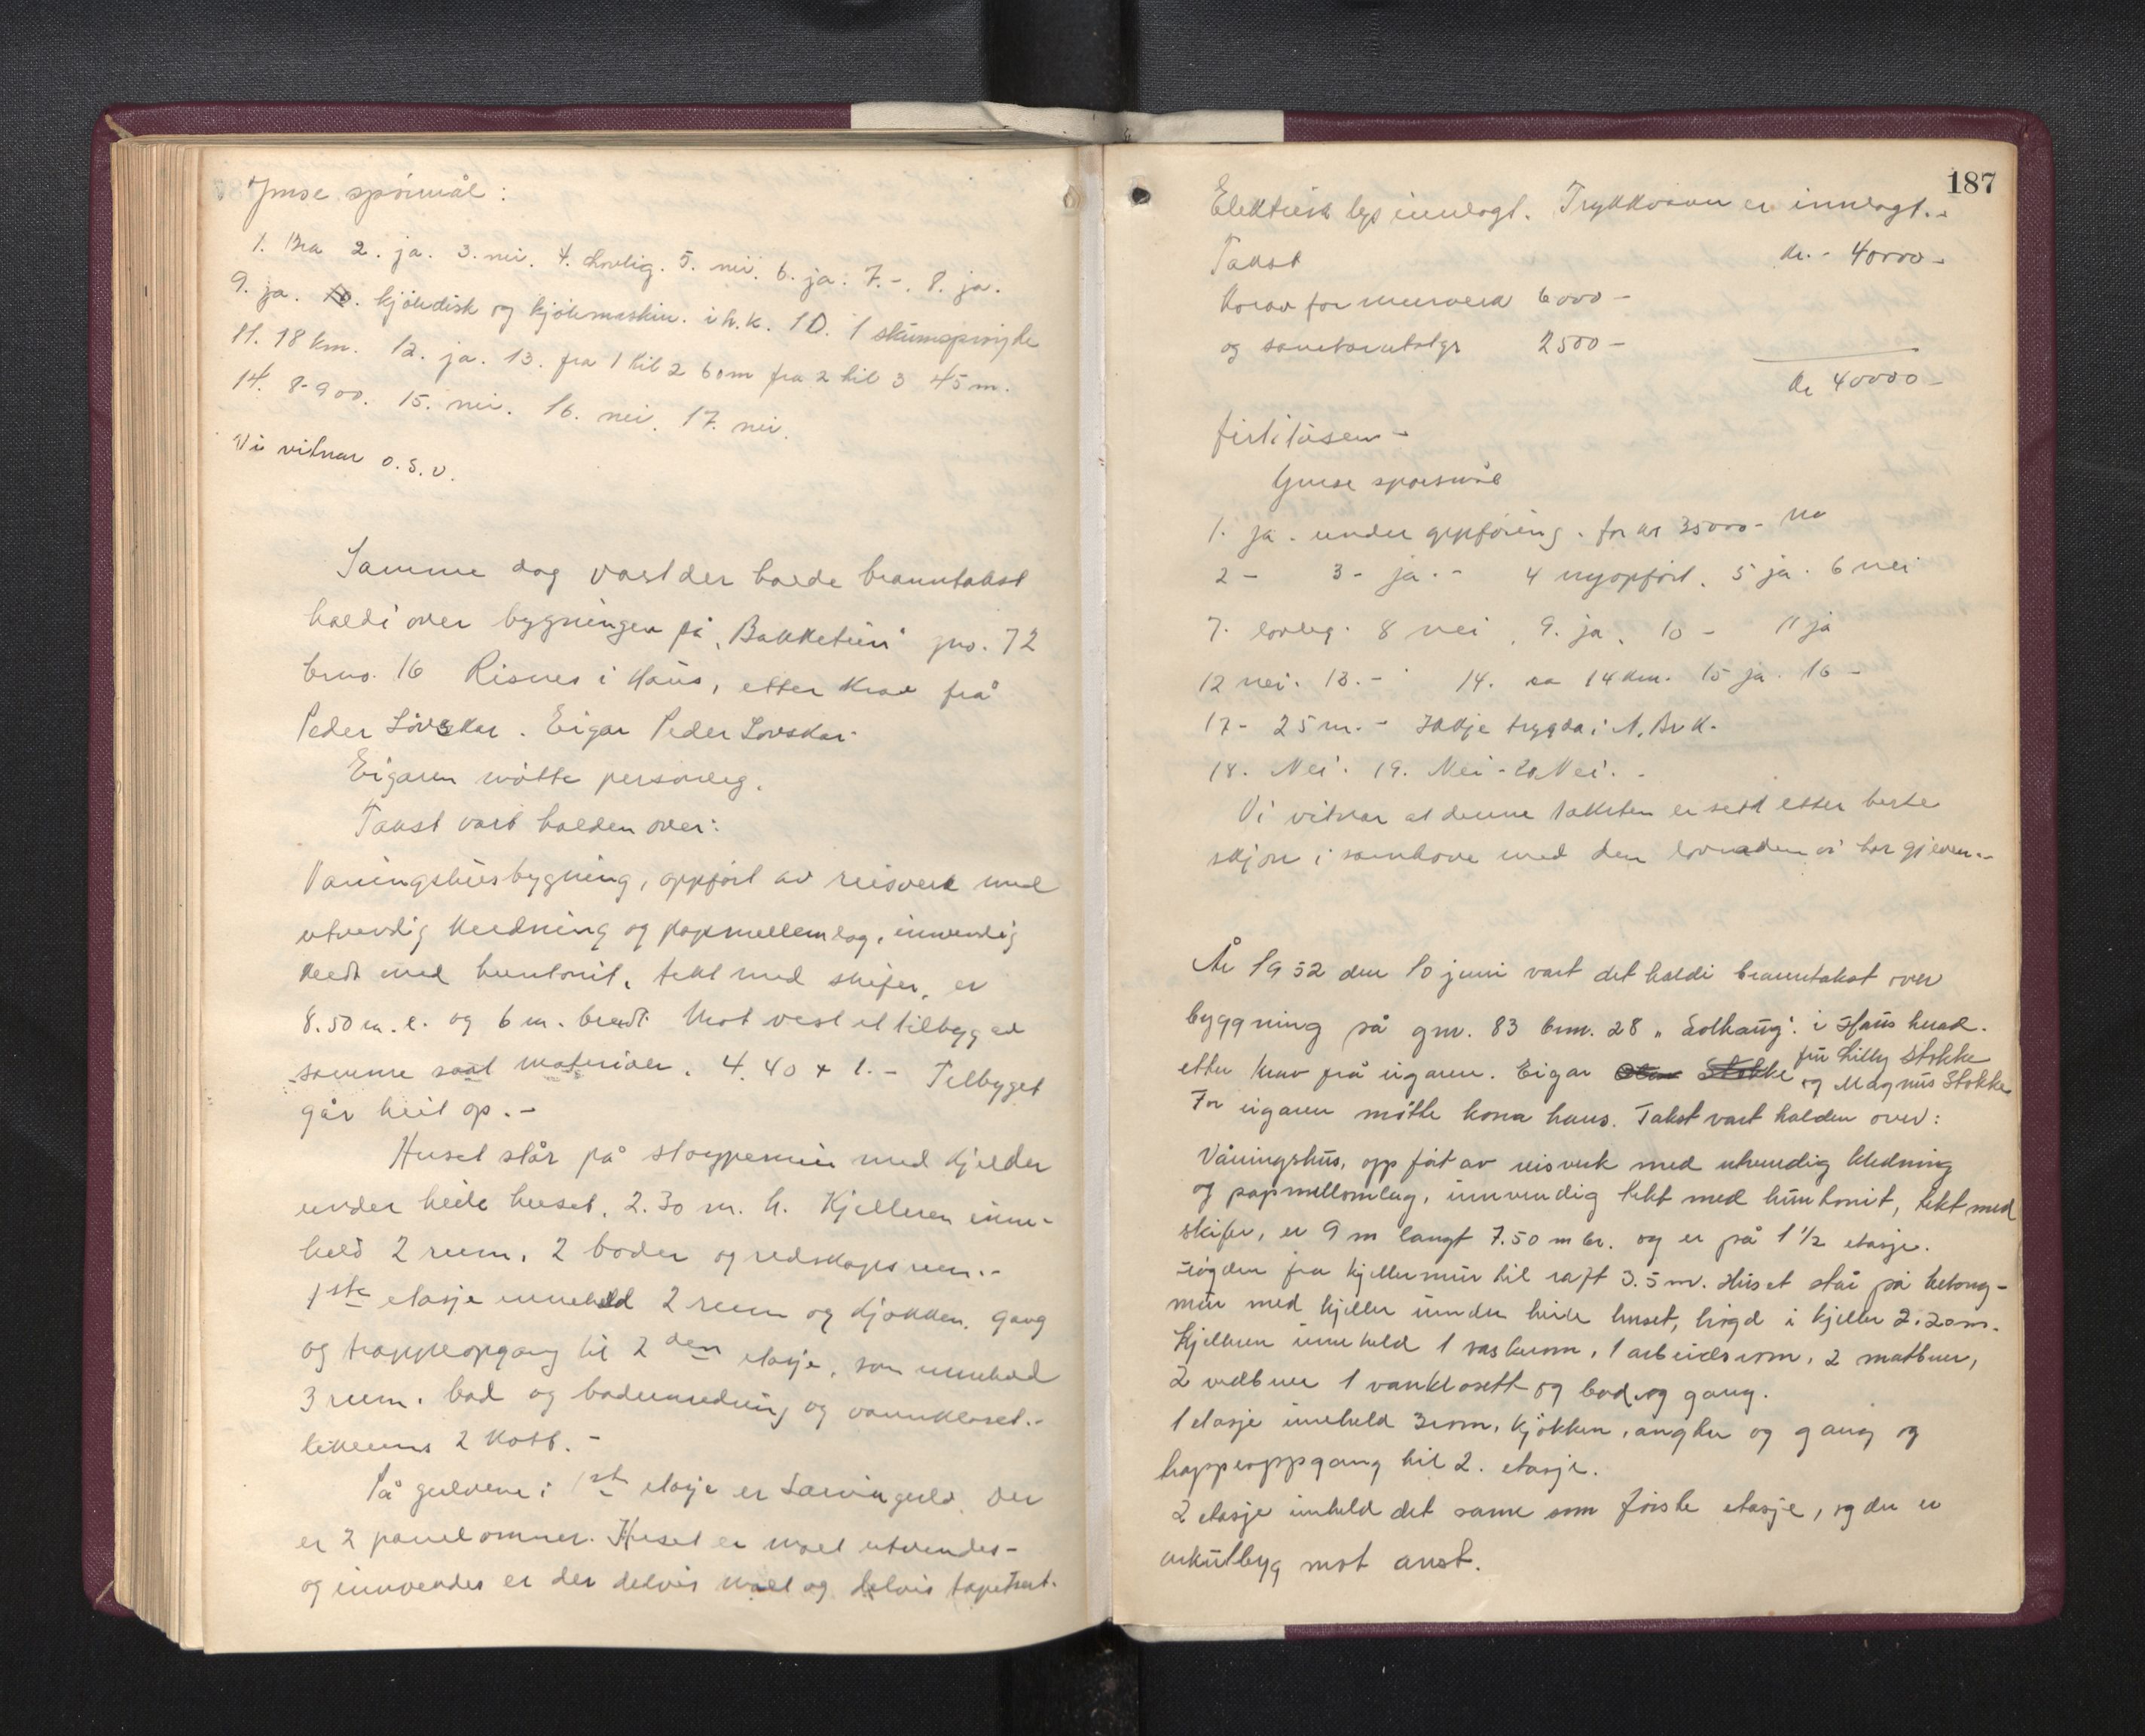 Ymse spörsmål:
1. Bra 2. ja. 3. nei. 4. Lovlig. 5. nei. 6. ja. 7. -. 8. ja.
9. ja. 10. kjöledisk og kjölemaskin. i h.k. 1 D. 1 skumspröyte
11. 18 km. 12. ja. 13. fra 1 til 2 6om fra 2 til 3 45 m.
14. 8-900. 15. nei. 16. nei. 17. nei.
Vi vitnar o.s.v.
Samme dag vart der halde branntakst
haldi over bygningen på "Bakketun" gno. 72
brno. 16 Risnes i Haus, etter krav frå
Peder Lövskar. Eigar Peder Lovskar.
Eigaren mötte personleg.
Takst vart halden over:
Vaningshusbygning, oppfört av reisverk med
utvendig kledning og papmellemlag, innvendig
kledt med huntonit, tekt med skifer, er
8.50 m. l. og 6 m. bredt. Mot vest et tilbygg av
samme slags materialer. 4.40 x 1.- Tilbyget
går heil op.-
Huset står på stoypemur med kjelder
under heile huset, 2.30 m. h. Kjelleren inne-
held 2 rum, 2 boder og redskapsrum.-
1ste etasje inneheld 2 rum og kjökken, gang
og trappeopgang til 2den etasje, som inneheld
3 rum, bad og badeinredning og vannkloset.-
likeeins 2 kott.-
På gulvene i 1ste etasje er Larvingulv. Der
er 2 panelomner. Huset er malt utvendes-
og innvendes er der delvis malt og delvis tapetsert.
187
Elektrisk lys innlagt. Trykkvann er innlagt.-
Takst kr.- 40000-
Herav for murverk 6000-
og sanitæranlegg 2500-
kr 40000-
firtitusen-
Ymse spörsmål
1. Ja. under oppföring. for kr 35000- No
2 - 3- ja.- 4 nyoppfört. 5 ja. 6 nei
7. lovleg. 8 nei. 9. ja. 10 - 11 ja
12 nei. 13.- 14. ca 14 km. 15 ja. 16 -
17- 25 m.- Ikkje trygda i N. Br. K.
18. Nei. 19. Nei - 20 Nei.-
Vi vitnar at denne taksten er sett etter beste
skjön i samhöve med den lovnaden vi har gjeven.-
År 1952 den 10 juni vart det haldi branntakst over
byggning på gnr. 83 bnr. 28 "Solhaug". i Haus herad.
etter krav frå eigaren. Eigar fru Lilly Stokke
og Magnus Stokke
For eigaren mötte kona hans. Takst vart halden over:
Våningshus, oppfört av reisverk med utvendig kledning
og papmellomlag, innvendig tekt med huntonit, tekt med
skifer, er 9 m langt 7.50 m br. og er på 1 1/2 etasje.
Högden fra kjellermur til raft 3.5 m. Huset står på betong-
mur med kjeller under heile huset, högd i kjeller 2.20 m.
Kjelleren inneheld 1 vaskerom, 1 arbeidsrom, 2 matbuer,
2 vedbuer 1 vanklosett og bad og gang.
1 etasje inneheld 3 rom, kjökken, angtre og gang og
trappeoppgang til 2. etasje.
2 etasje inheld det same som förste etasje, og der er
arkutbyg mot aust.